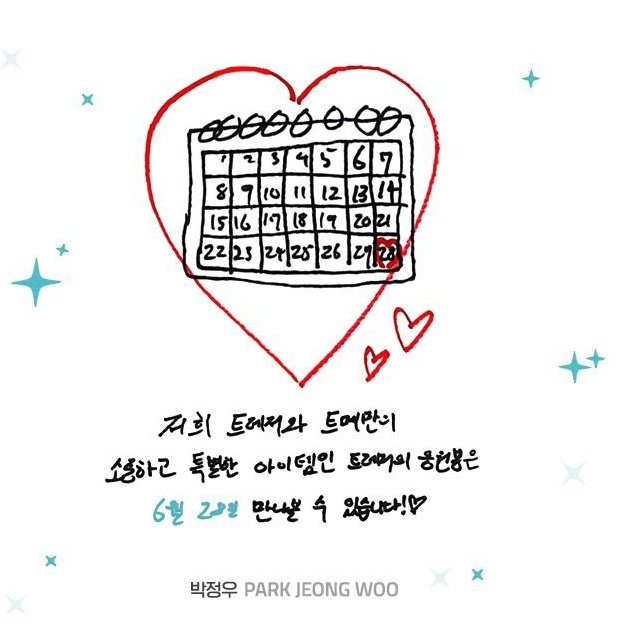 1 2 3 4 5 6 7
8 9 10 11 12 13 14
15 16 17 18 19 20 21
22 23 24 25 26 27 28
저희 트레저와 트메만의
소중하고 특별한 아이템인 트레저의 응원봉은
6월 28일 만나볼 수 있습니다!♡
박정우 PARK JEONG WOO